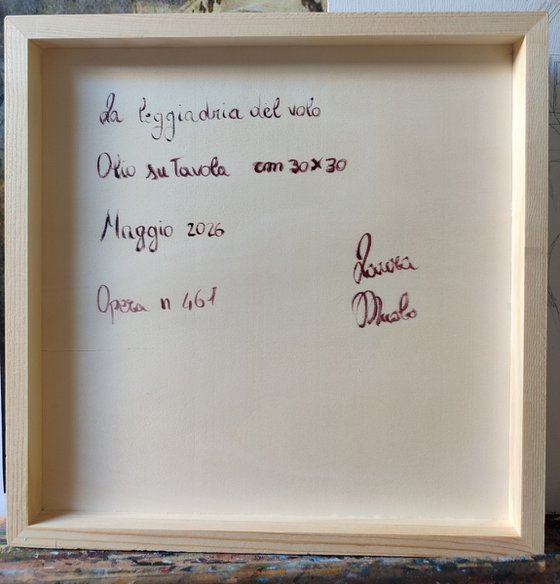 La leggiadria del volo
Olio su Tavola cm 30x30
Maggio 2026
Opera n 461
Laura
Muolo